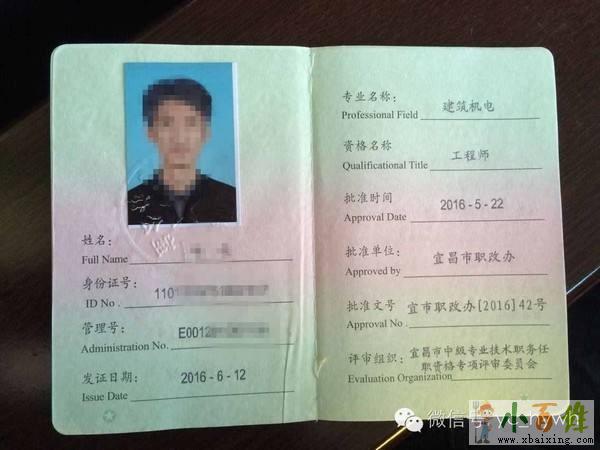 姓名：
Full Name
身份证号：
ID No .
110
管理号：
Administration No.
E0012
发证日期：
Issue Date
2016 - 6 - 12
专业名称：
Professional Field
建筑机电
资格名称
Qualificational Title
工程师
批准时间
Approval Date
2016 - 5 - 22
批准单位：
Approved by
宜昌市职改办
批准文号
Approval No .
宜市职改办[2016]42号
评审组织：
Evaluation Organization
宜昌市中级专业技术职务任
职资格专项评审委员会
微信号
小百姓
www.xbaixing.com